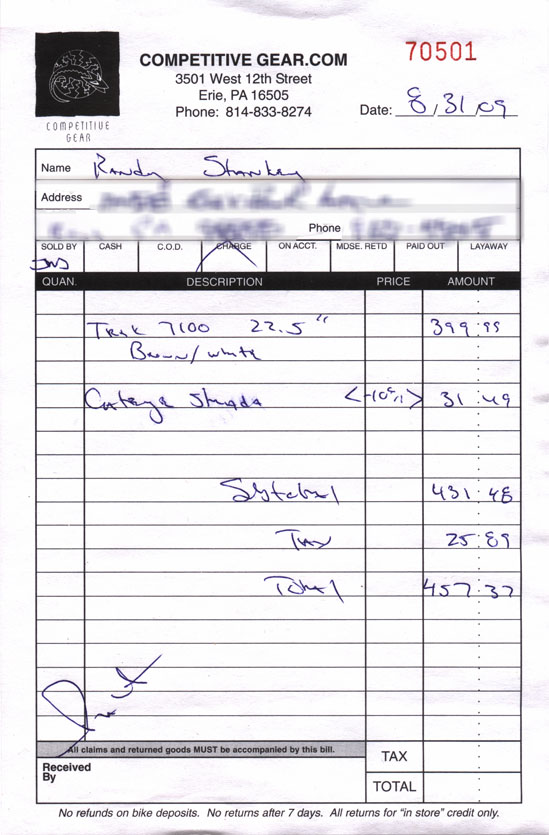 COMPETITIVE GEAR
COMPETITIVE GEAR.COM
3501 West 12th Street
Erie, PA 16505
Phone: 814-833-8274
70501
Date: 8/31/09
Name Randy Stankey
Address
Phone
SOLD BY CASH C.O.D. CHARGE ON ACCT. MDSE. RETD PAID OUT LAYAWAY
QUAN. DESCRIPTION PRICE AMOUNT
Trek 7100 22.5" 399.99
Brown/white
Cateye Strada <-10%> 31.49
Subtotal 431.48
Tax 25.89
Total 457.37
All claims and returned goods MUST be accompanied by this bill.
Received
By
TAX
TOTAL
No refunds on bike deposits. No returns after 7 days. All returns for "in store" credit only.